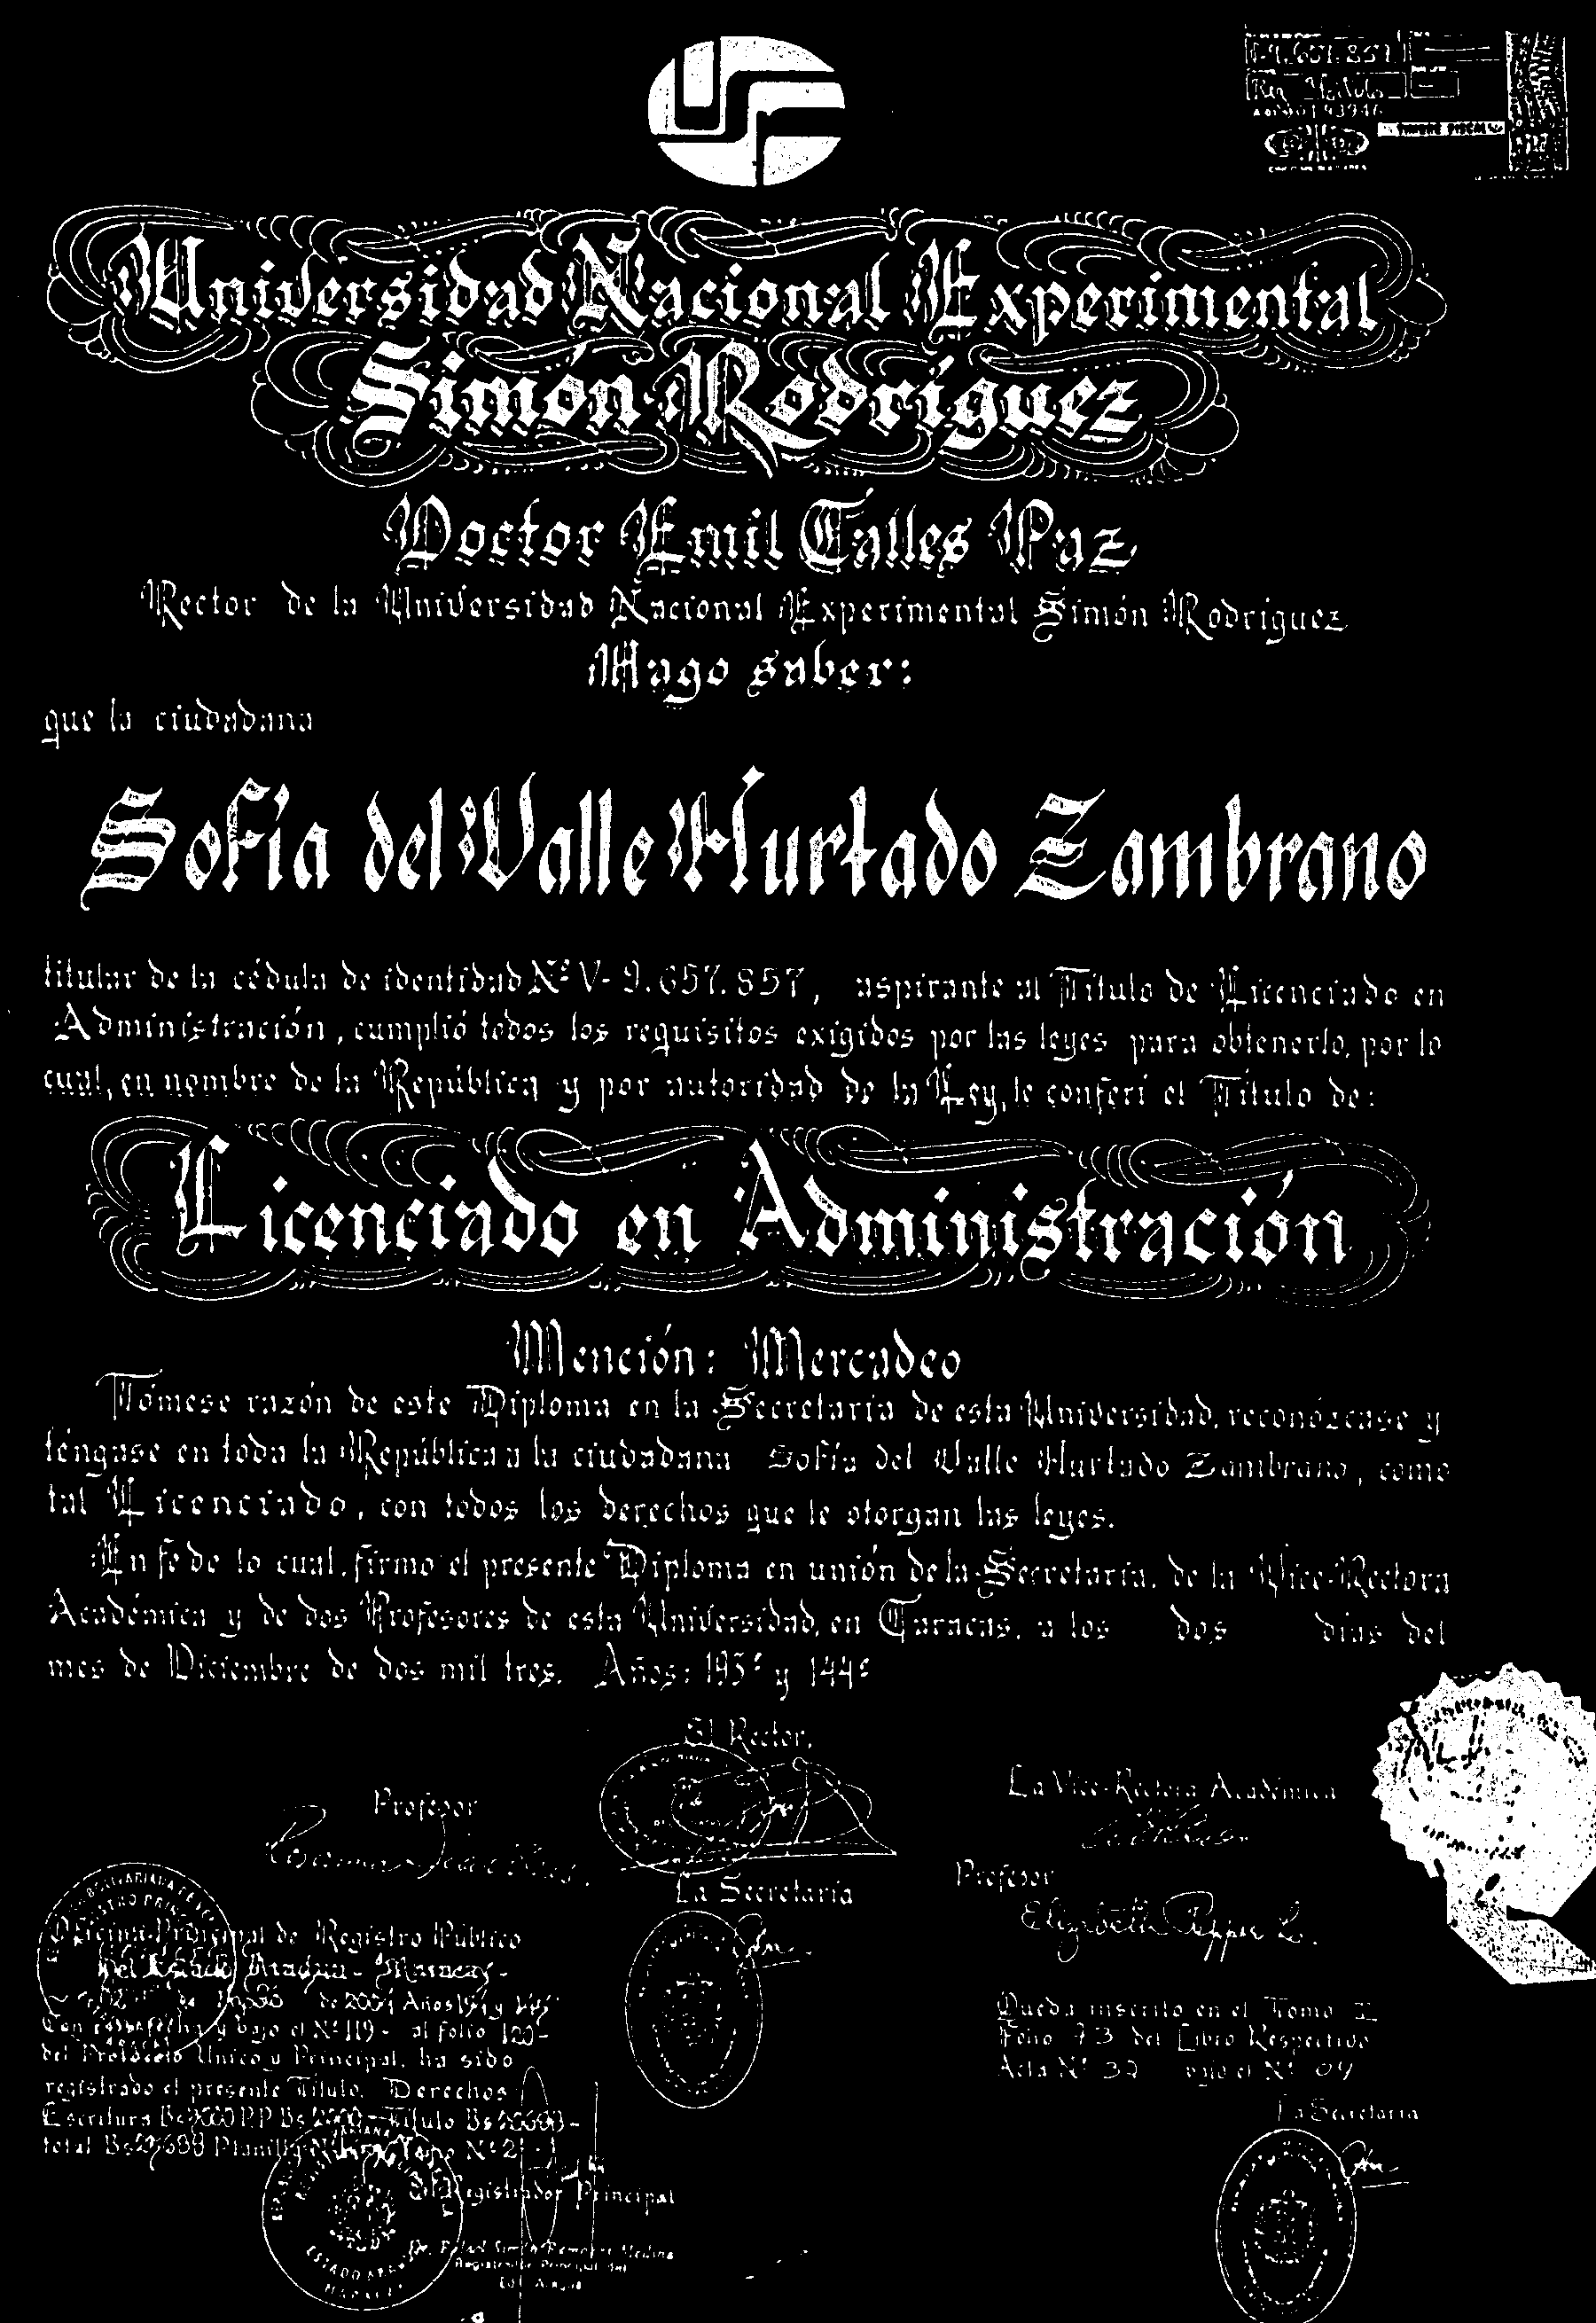 V-9.657.857
TIMBRE FISCAL
Universidad Nacional Experimental
Simón Rodríguez
Doctor Emil Calles Paz
Rector de la Universidad Nacional Experimental Simón Rodríguez
Hago saber:
que la ciudadana
Sofía del Valle Hurtado Zambrano
titular de la cédula de identidad Nº V- 9.657.857, aspirante al Título de Licenciado en
Administración, cumplió todos los requisitos exigidos por las leyes para obtenerlo, por lo
cual, en nombre de la República y por autoridad de la Ley, le conferí el Título de:
Licenciado en Administración
Mención: Mercadeo
Tómese razón de este Diploma en la Secretaría de esta Universidad, reconózcase y
téngase en toda la República a la ciudadana Sofía del Valle Hurtado Zambrano, como
tal Licenciado, con todos los derechos que le otorgan las leyes.
En fe de lo cual, firmo el presente Diploma en unión de la Secretaria, de la Vice-Rectora
Académica y de dos Profesores de esta Universidad, en Caracas, a los dos días del
mes de Diciembre de dos mil tres. Años: 193º y 144º
El Rector,
La Vice-Rectora Académica
Profesor
La Secretaria
Profesor
Elizabeth Pepper L.
Oficina Principal de Registro Público
del Estado Aragua - Maracay -
de 2004 Años 194 y 145
Con esta fecha y bajo el Nº 119 - al folio 120 -
del Protocolo Unico y Principal, ha sido
registrado el presente Título. Derechos
Escritura Bs P.P. Bs Título Bs
total Bs Planilla Nº 2
El Registrador Principal
Registrador Principal del
Edo. Aragua
Queda inscrito en el Tomo
Folio 73 del Libro Respectivo
Acta Nº 32 bajo el Nº 04
La Secretaria